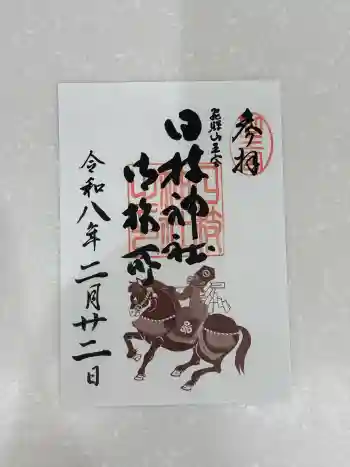 参拝
飛騨山王宮
日枝神社
御旅所
令和八年二月廿二日